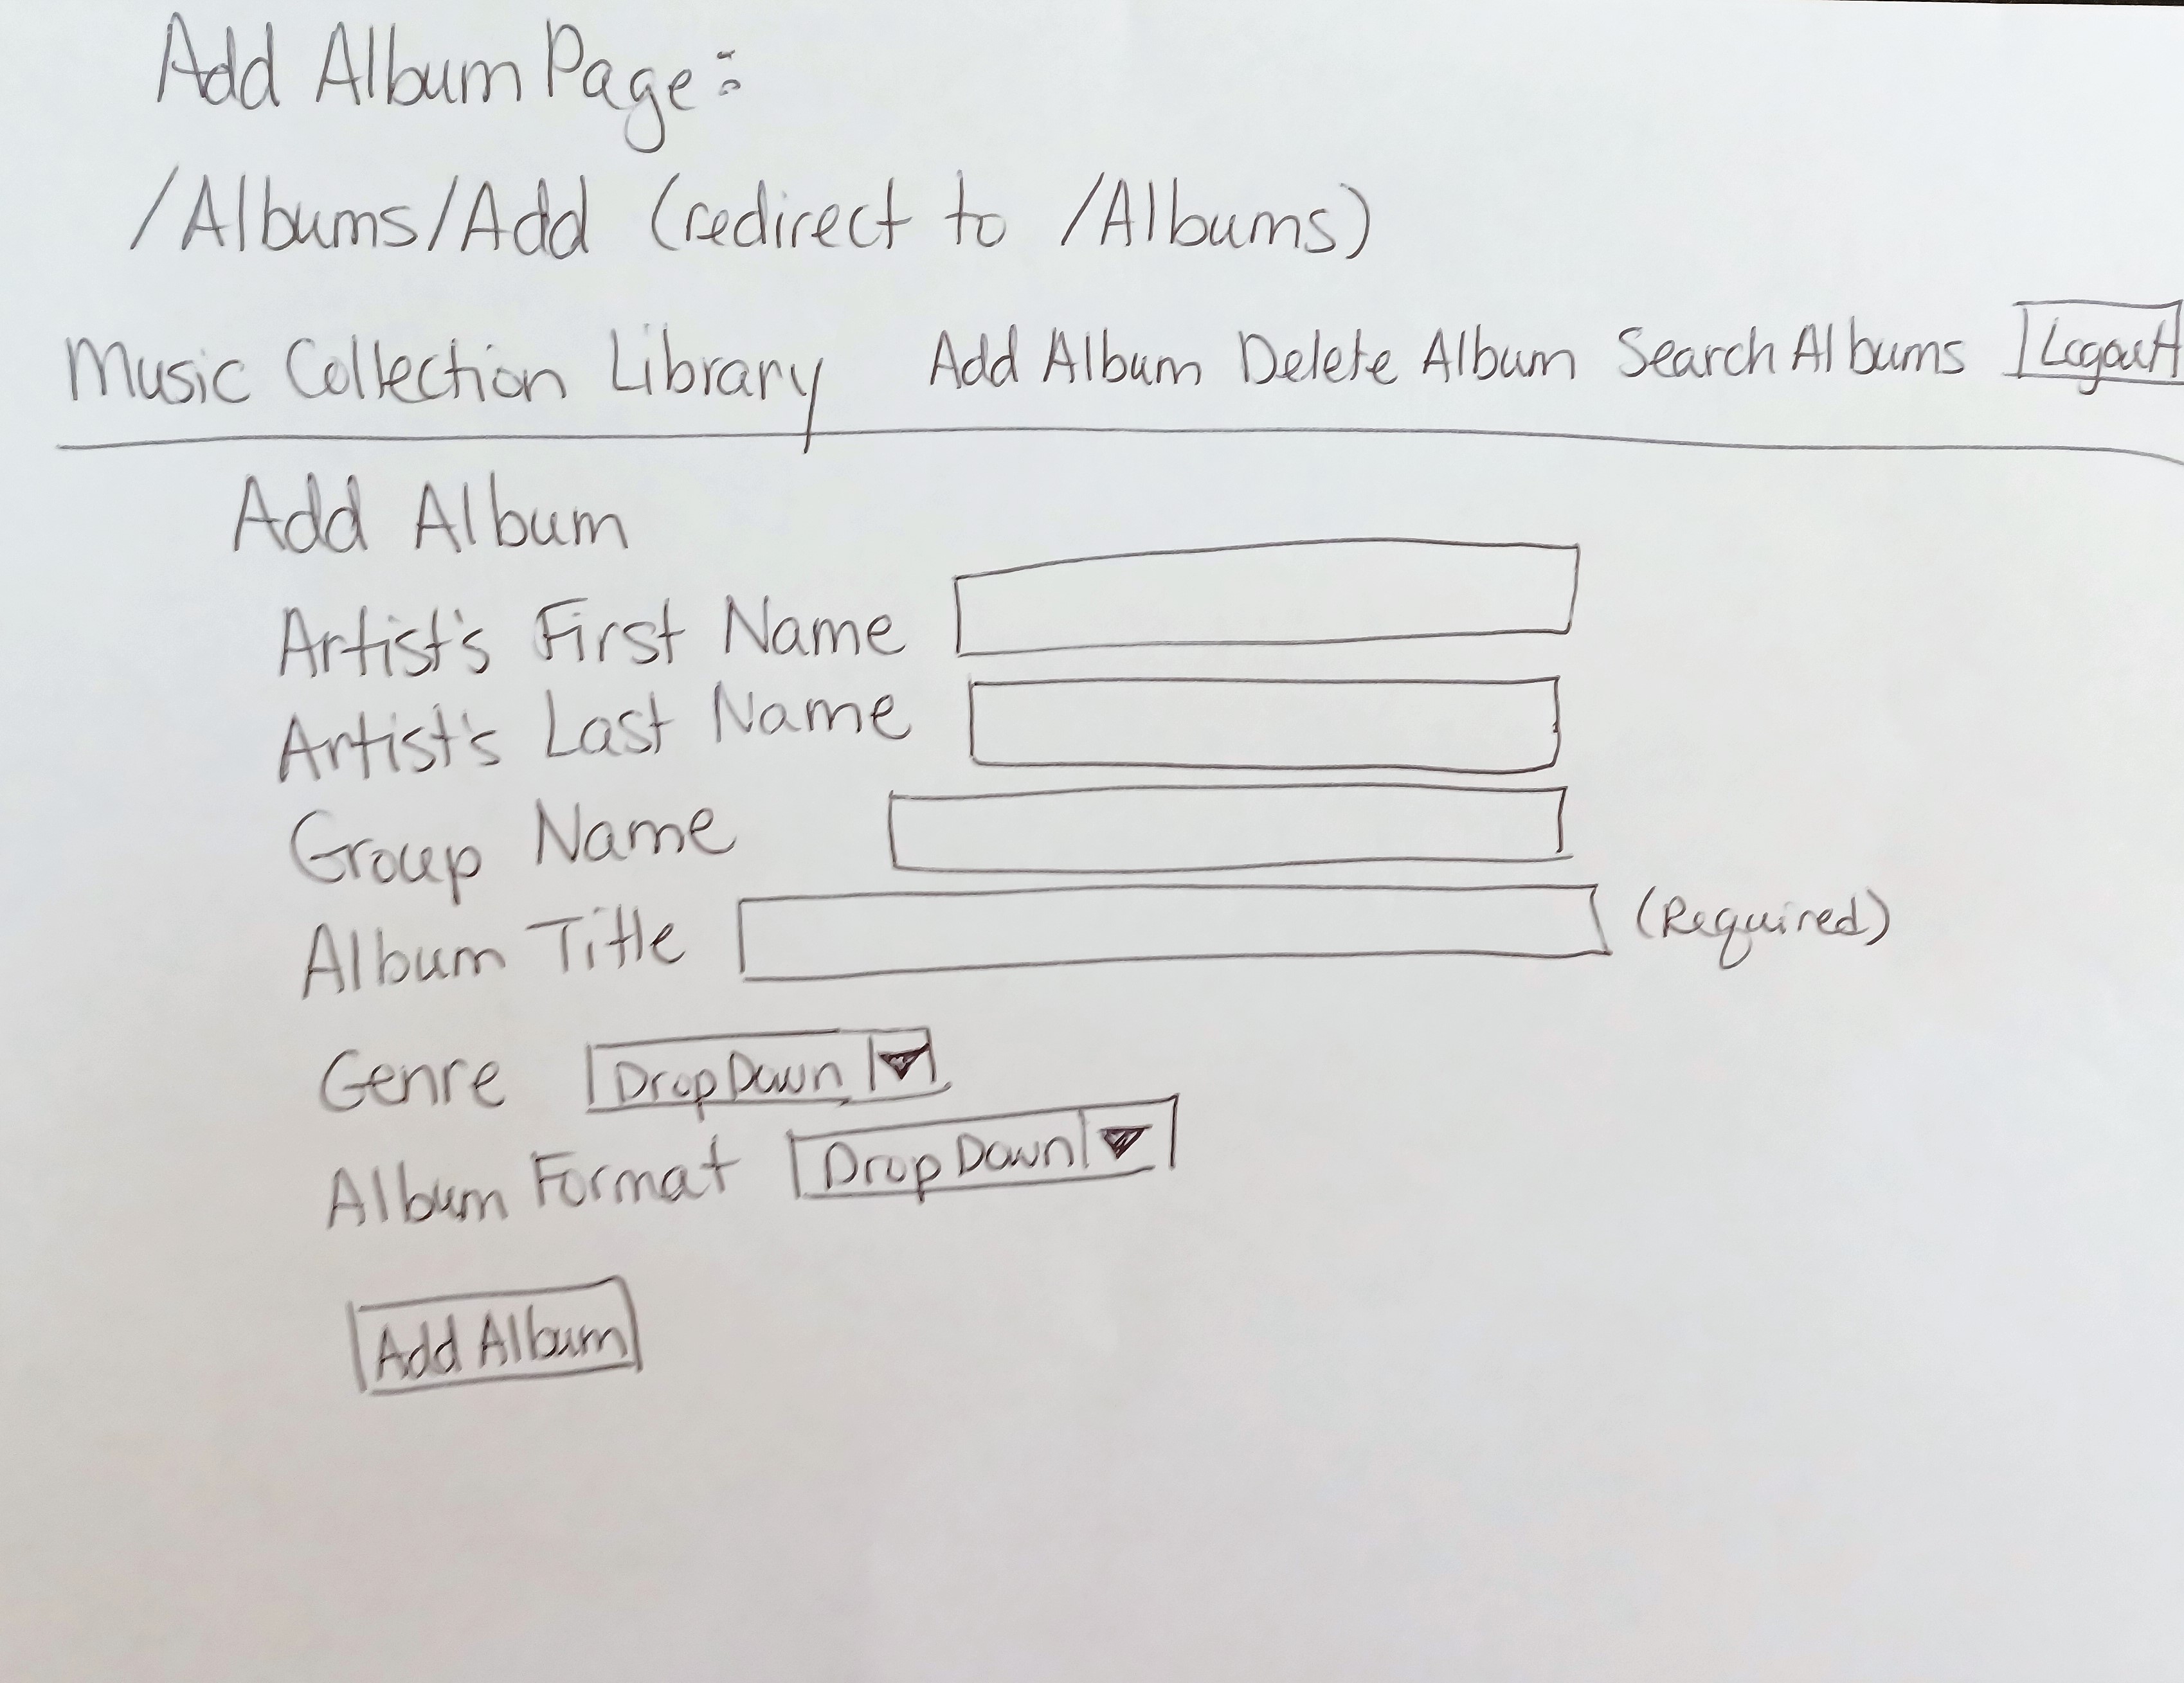 Add Album Page:
/Albums/Add (redirect to /Albums)
Music Collection Library Add Album Delete Album Search Albums Logout
Add Album
Artist's First Name
Artist's Last Name
Group Name
Album Title (Required)
Genre DropDown
Album Format DropDown
Add Album